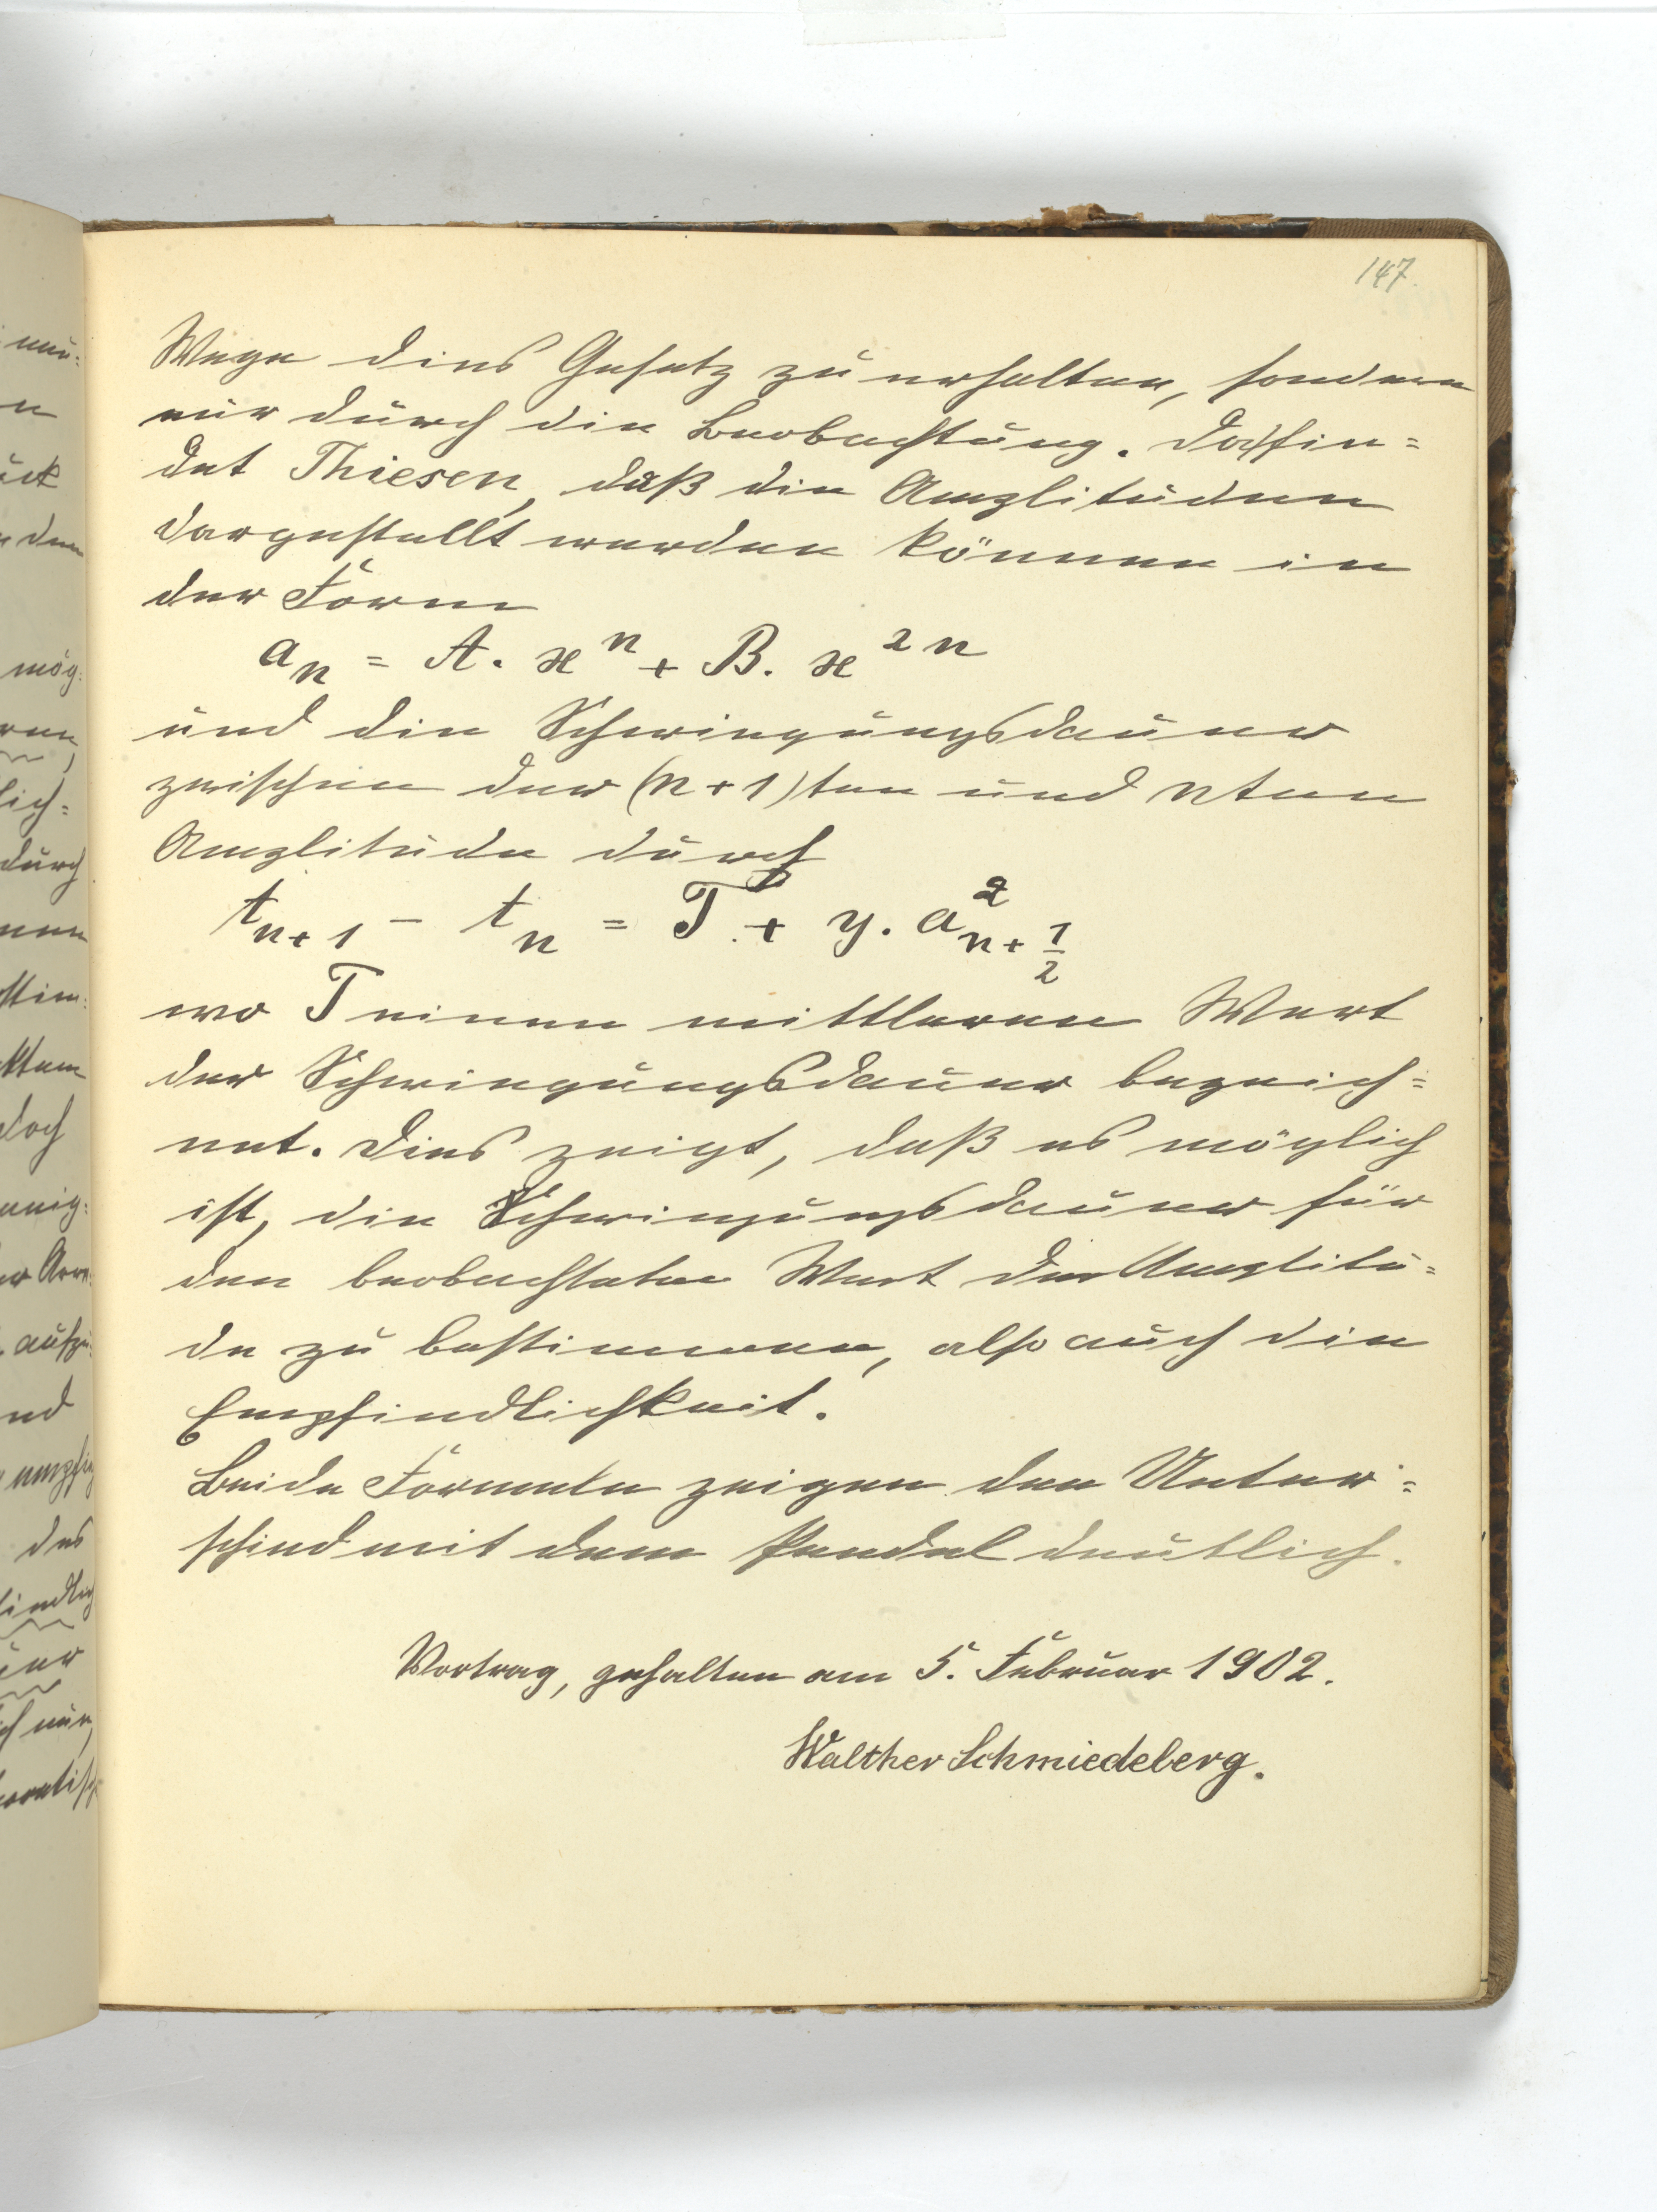 147.
Wege dies Gesetz zu erhalten, sondern
nur durch die Beobachtung. Da fin=
det Thiesen, daß die Amplituden
dargestellt werden können in
der Form
aₙ = A. ϰⁿ + B. ϰ²ⁿ
und die Schwingungsdauer
zwischen der (n+1)ten und nten
Amplitude durch
tₙ₊₁ - tₙ = T + y. a²ₙ₊½
wo T einen mittleren Wert
der Schwingungsdauer bezeich=
net. Dies zeigt, daß es möglich
ist, die Schwingungsdauer für
den beobachteten Wert der Amplitu=
de zu bestimmen, also auch die
Empfindlichkeit.
Beide Formeln zeigen den Unter=
schied mit dem Pendel deutlich.
Vortrag, gehalten am 5. Februar 1902.
Walther Schmiedeberg.